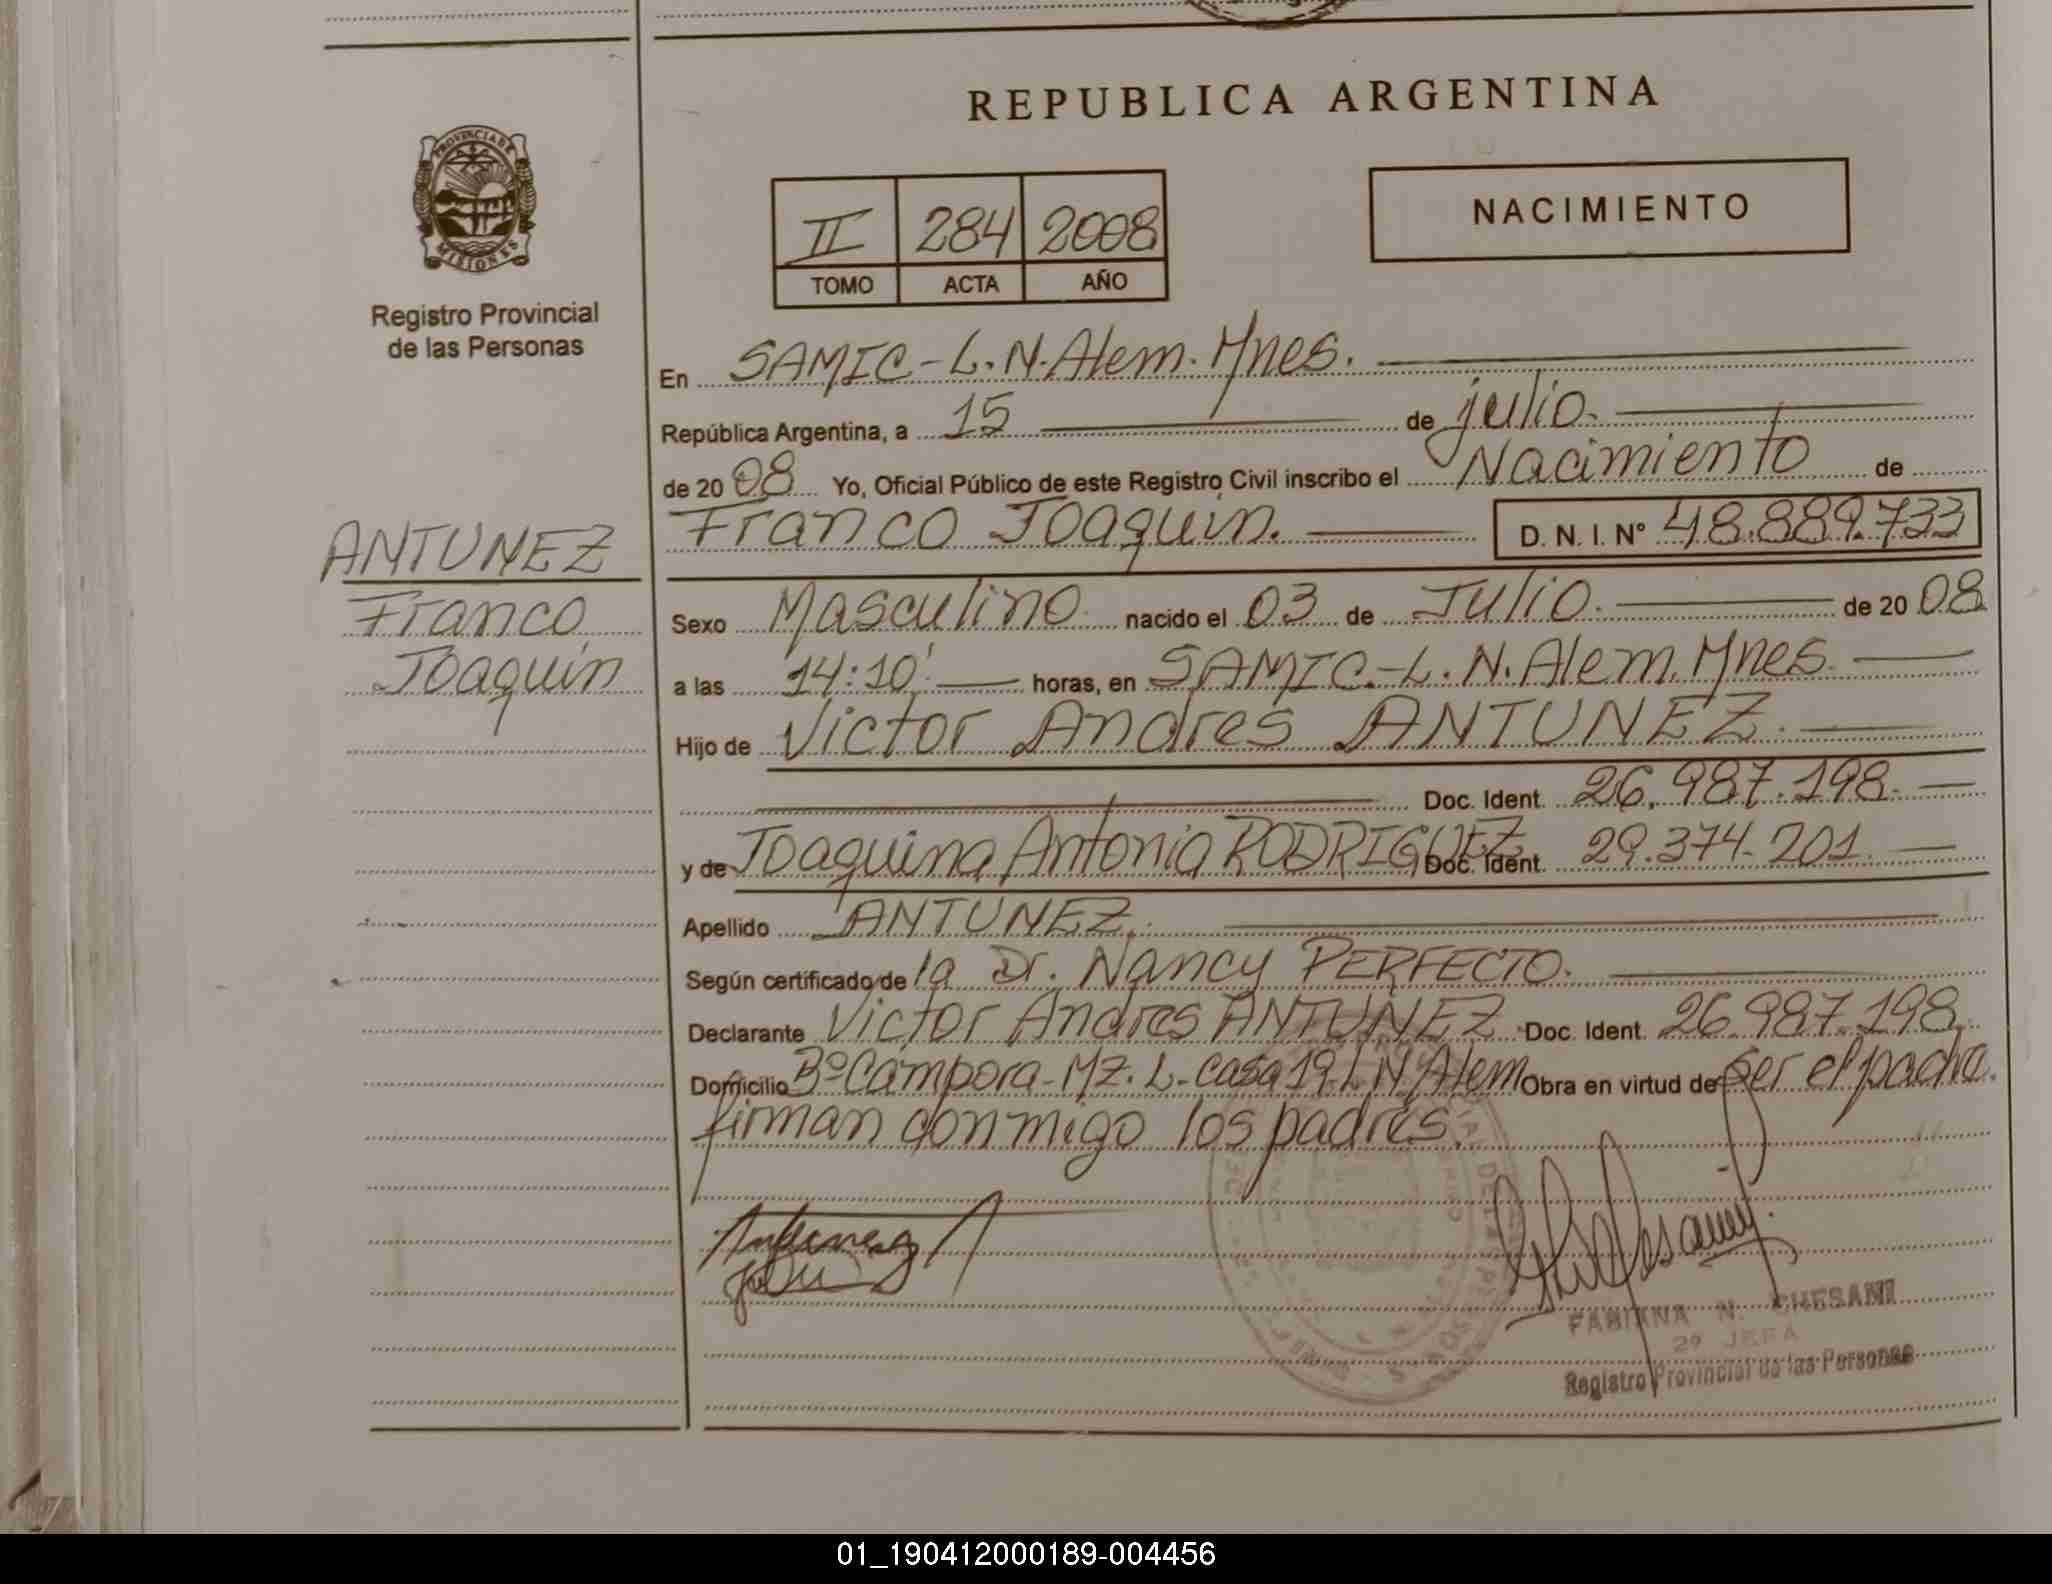 REPUBLICA ARGENTINA
PROVINCIA DE MISIONES
Registro Provincial
de las Personas
II 284 2008
TOMO ACTA AÑO
NACIMIENTO
En SAMIC-L.N.Alem.Mnes.
República Argentina, a 15 de julio.
de 2008 Yo, Oficial Público de este Registro Civil inscribo el Nacimiento de
Franco Joaquín. D. N. I. N° 48.889.733
ANTUNEZ
Franco
Joaquín
Sexo Masculino nacido el 03 de Julio. de 2008
a las 14:10' horas, en SAMIC.-L.N.Alem.Mnes.
Hijo de Victor Andres ANTUNEZ.
Doc. Ident. 26.987.198.
y de Joaquina Antonia RODRIGUEZ Doc. Ident. 29.374.201.
Apellido ANTUNEZ.
Según certificado de la Dr. Nancy PERFECTO.
Declarante Victor Andres ANTUNEZ Doc. Ident. 26.987.198.
Domicilio Bº Campora-Mz. L-casa 19-L N Alem Obra en virtud de ser el padre.
firman conmigo los padres.
FABIANA N. CHESANI
2º JEFA
Registro Provincial de las Personas
01_190412000189-004456